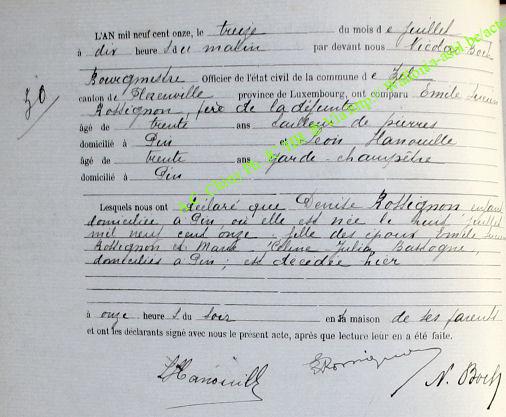 L'AN mil neuf cent onze, le treize du mois de juillet
à dix heures du matin par devant nous Nicolas Boch
Bourgmestre Officier de l'état civil de la commune de
canton de Florenville province de Luxembourg, ont comparu Emile
Rossignon, père de la défunte
âgé de trente ans tailleur de pierres
domicilié à Pin et Léon Hanouille
âgé de trente ans garde-champêtre
domicilié à Pin
50
Lesquels nous ont déclaré que Denise Rossignon enfant
domiciliée à Pin où elle est née le neuf juillet
mil neuf cent onze fille des époux Emile
Rossignon et Marie Céline Julia Bastogne,
domiciliés à Pin; est décédée hier
à onze heures du soir en la maison de ses parents
et ont les déclarants signé avec nous le présent acte, après que lecture leur en a été faite.
LHanouille ERossignon N. Boch